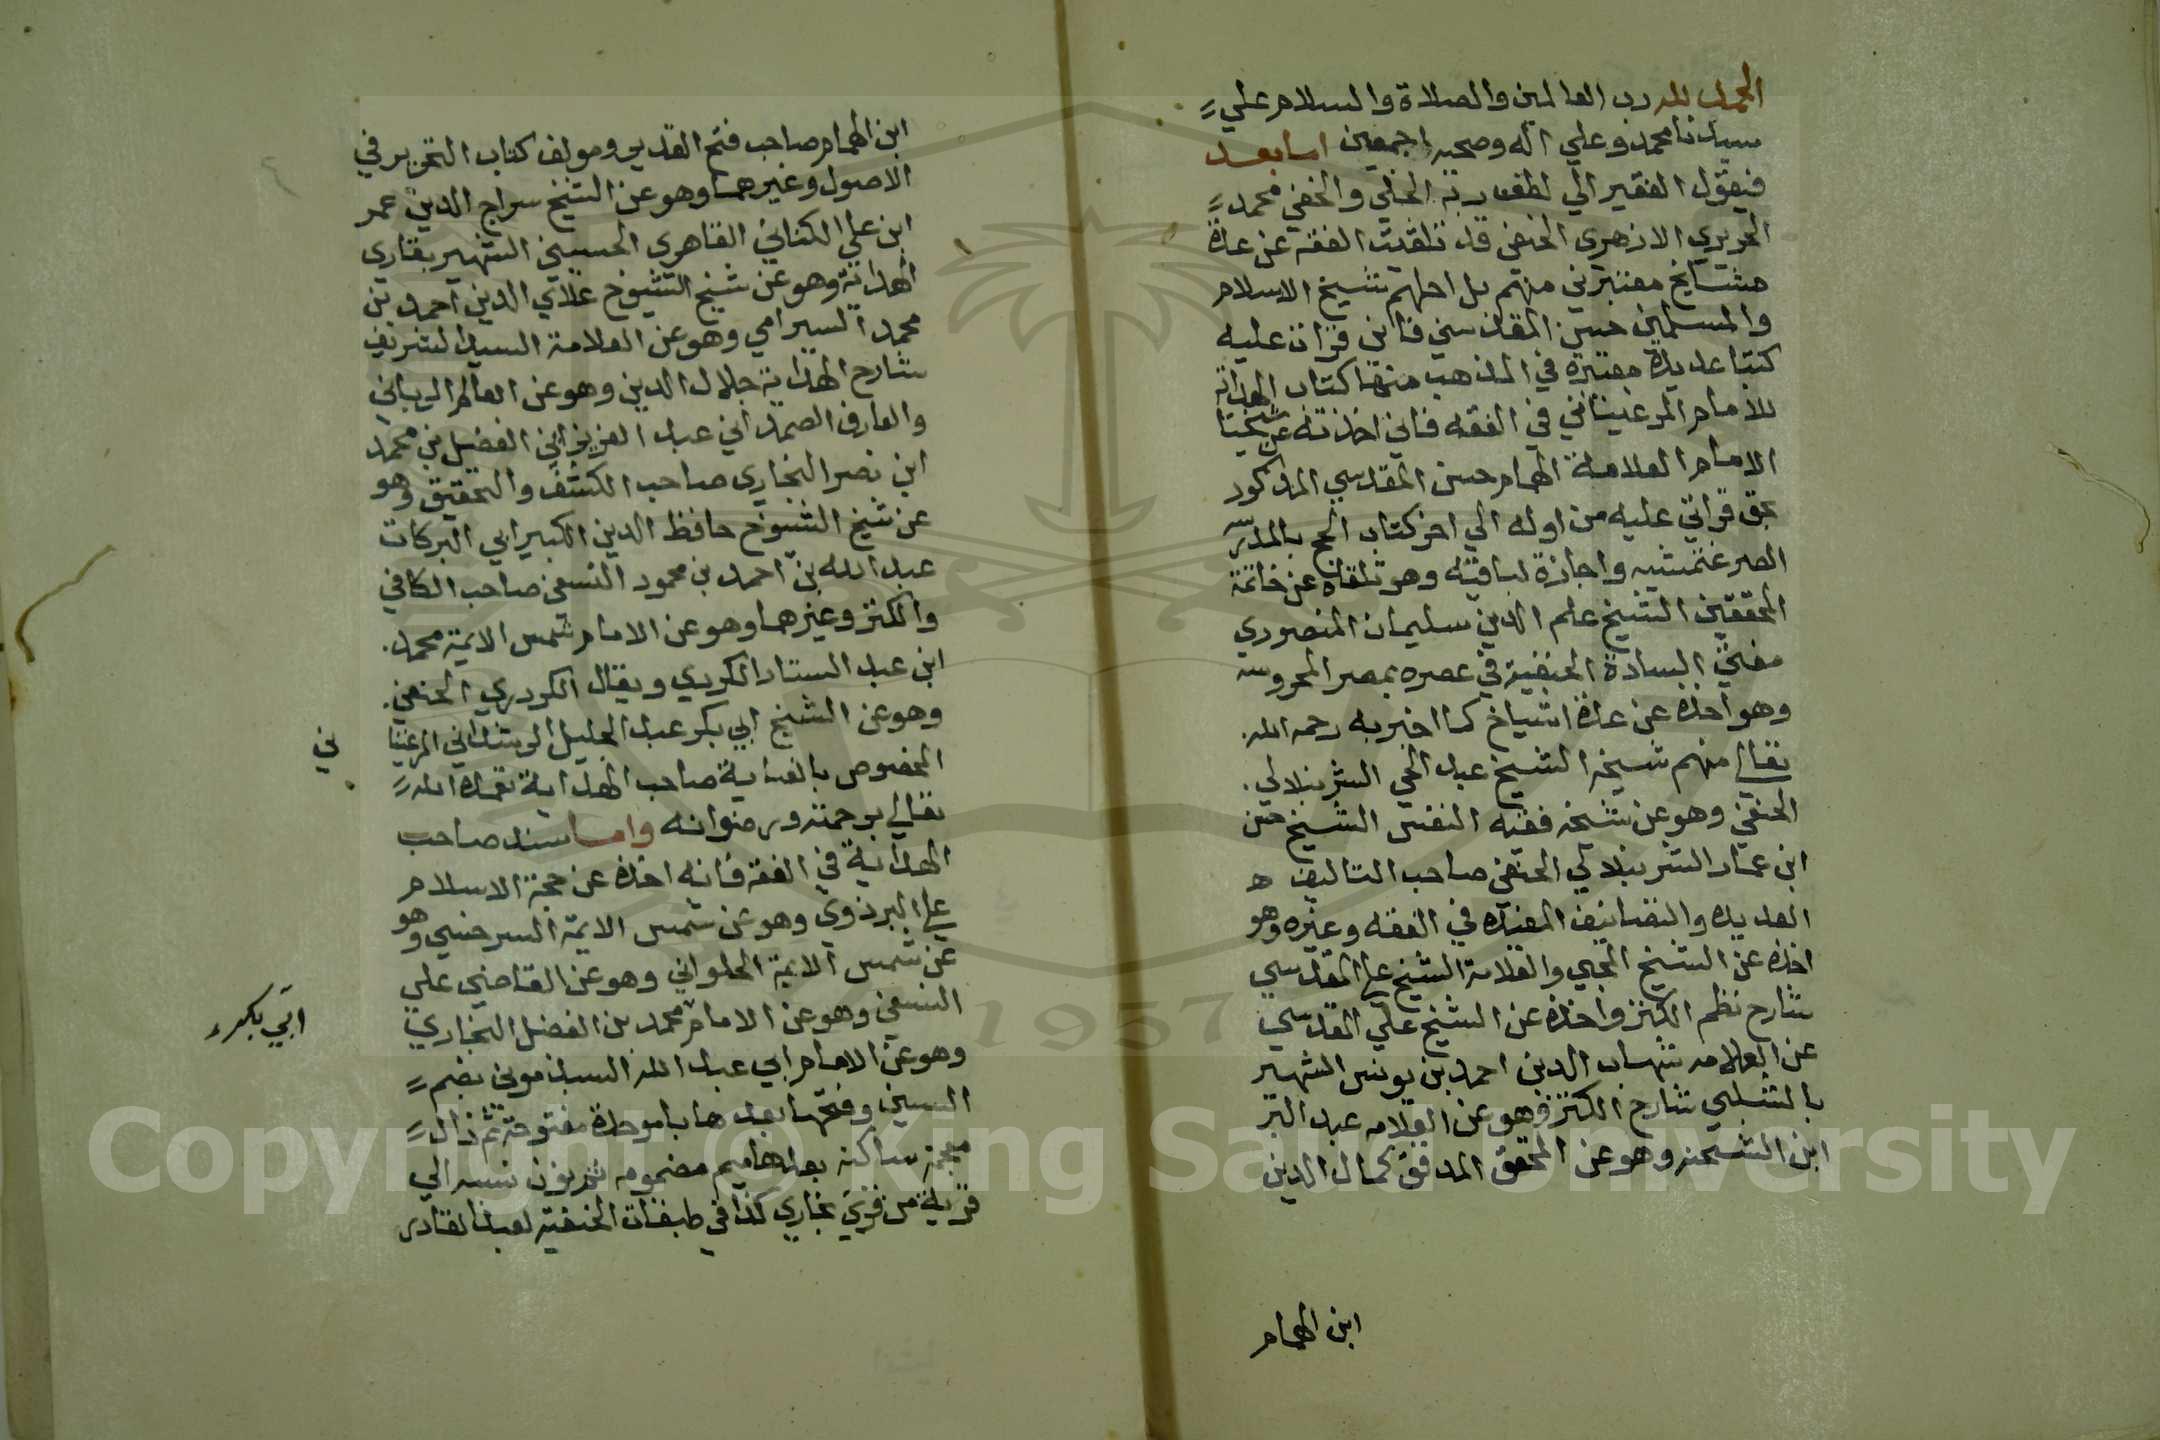 الحمد لله رب العالمين والصلاة والسلام علي
سيدنا محمد وعلي اله وصحبه اجمعين اما بعد
فيقول الفقير الي لطف ربه الجلي والخفي محمد
الحريري الازهري الحنفي قد تلقيت الفقه عن عدة
مشايخ معتبرين منهم بل اجلهم شيخ الاسلام
والمسلمين حسن المقدسي فاني قرات عليه
كتبا عديدة معتبرة في المذهب منها كتاب الهداية
للامام المرغيناني في الفقه فاني اخذته عن شيخنا
الامام العلامة الهمام حسن المقدسي المذكور
بحق قراتي عليه من اوله الي اخر كتاب الحج بالمدرسة
الصرغتمشيه واجازة لباقيه وهو تلقاه عن خاتمة
المحققين الشيخ علم الدين سليمان المنصوري
مفتي السادة الحنفية في عصره بمصر المحروسه
وهو اخذه عن عدة اشياخ كما اخبر به رحمه الله
تعالي منهم شيخه الشيخ عبد الحي الشرنبلالي
الحنفي وهو عن شيخه فقيه النفس الشيخ حسن
ابن عمار الشرنبلالي الحنفي صاحب التاليف
العديده والتصانيف المفيده في الفقه وغيره وهو
اخذه عن الشيخ المحبي والعلامة الشيخ علي المقدسي
شارح نظم الكنز واخذه عن الشيخ علي المقدسي
عن العلامه شهاب الدين احمد بن يونس الشهير
بالشلبي شارح الكنز وهو عن العلامه عبد البر
ابن الشحنه وهو عن المحقق المدقق كمال الدين
ابن الهمام
ابن الهمام صاحب فتح القدير ومولف كتاب التحرير في
الاصول وغيرهما وهو عن الشيخ سراج الدين عمر
ابن علي الكناني القاهري الحسيني الشهير بقاري
الهداية وهو عن شيخ الشيوخ علاي الدين احمد بن
محمد السيرامي وهو عن العلامة السيد الشريف
شارح الهداية جلال الدين وهو عن العالم الرباني
والعارف الصمداني عبد العزيز ابي الفضل بن محمد
ابن نصر البخاري صاحب الكشف والتحقيق وهو
عن شيخ الشيوخ حافظ الدين الكبير ابي البركات
عبد الله بن احمد بن محمود النسفي صاحب الكافي
والكنز وغيرهما وهو عن الامام شمس الايمة محمد
ابن عبد الستار الكردي ويقال الكردري الحنفي
وهو عن الشيخ ابي بكر عبد الجليل الرشداني المرغينا
ني
المخصوص بالعناية صاحب الهداية تغمده الله
تعالي برحمته ورضوانه واما سند صاحب
الهداية في الفقه فانه اخذه عن حجة الاسلام
علي البزدوي وهو عن شمس الايمة السرخسي وهو
عن شمس الايمة الحلواني وهو عن القاضي علي
النسفي وهو عن الامام محمد بن الفضل البخاري
ابي بكر
وهو عن الامام ابي عبد الله السبذموني بضم
السين وفتحها بعدها با موحدة مفتوحة ثم ذال
معجمه ساكنه بعدها ميم مضمومه ثم نون نسبه الي
قرية من قري بخاري كذا في طبقات الحنفية لعبد القادر
Copyright © King Saud University
1957